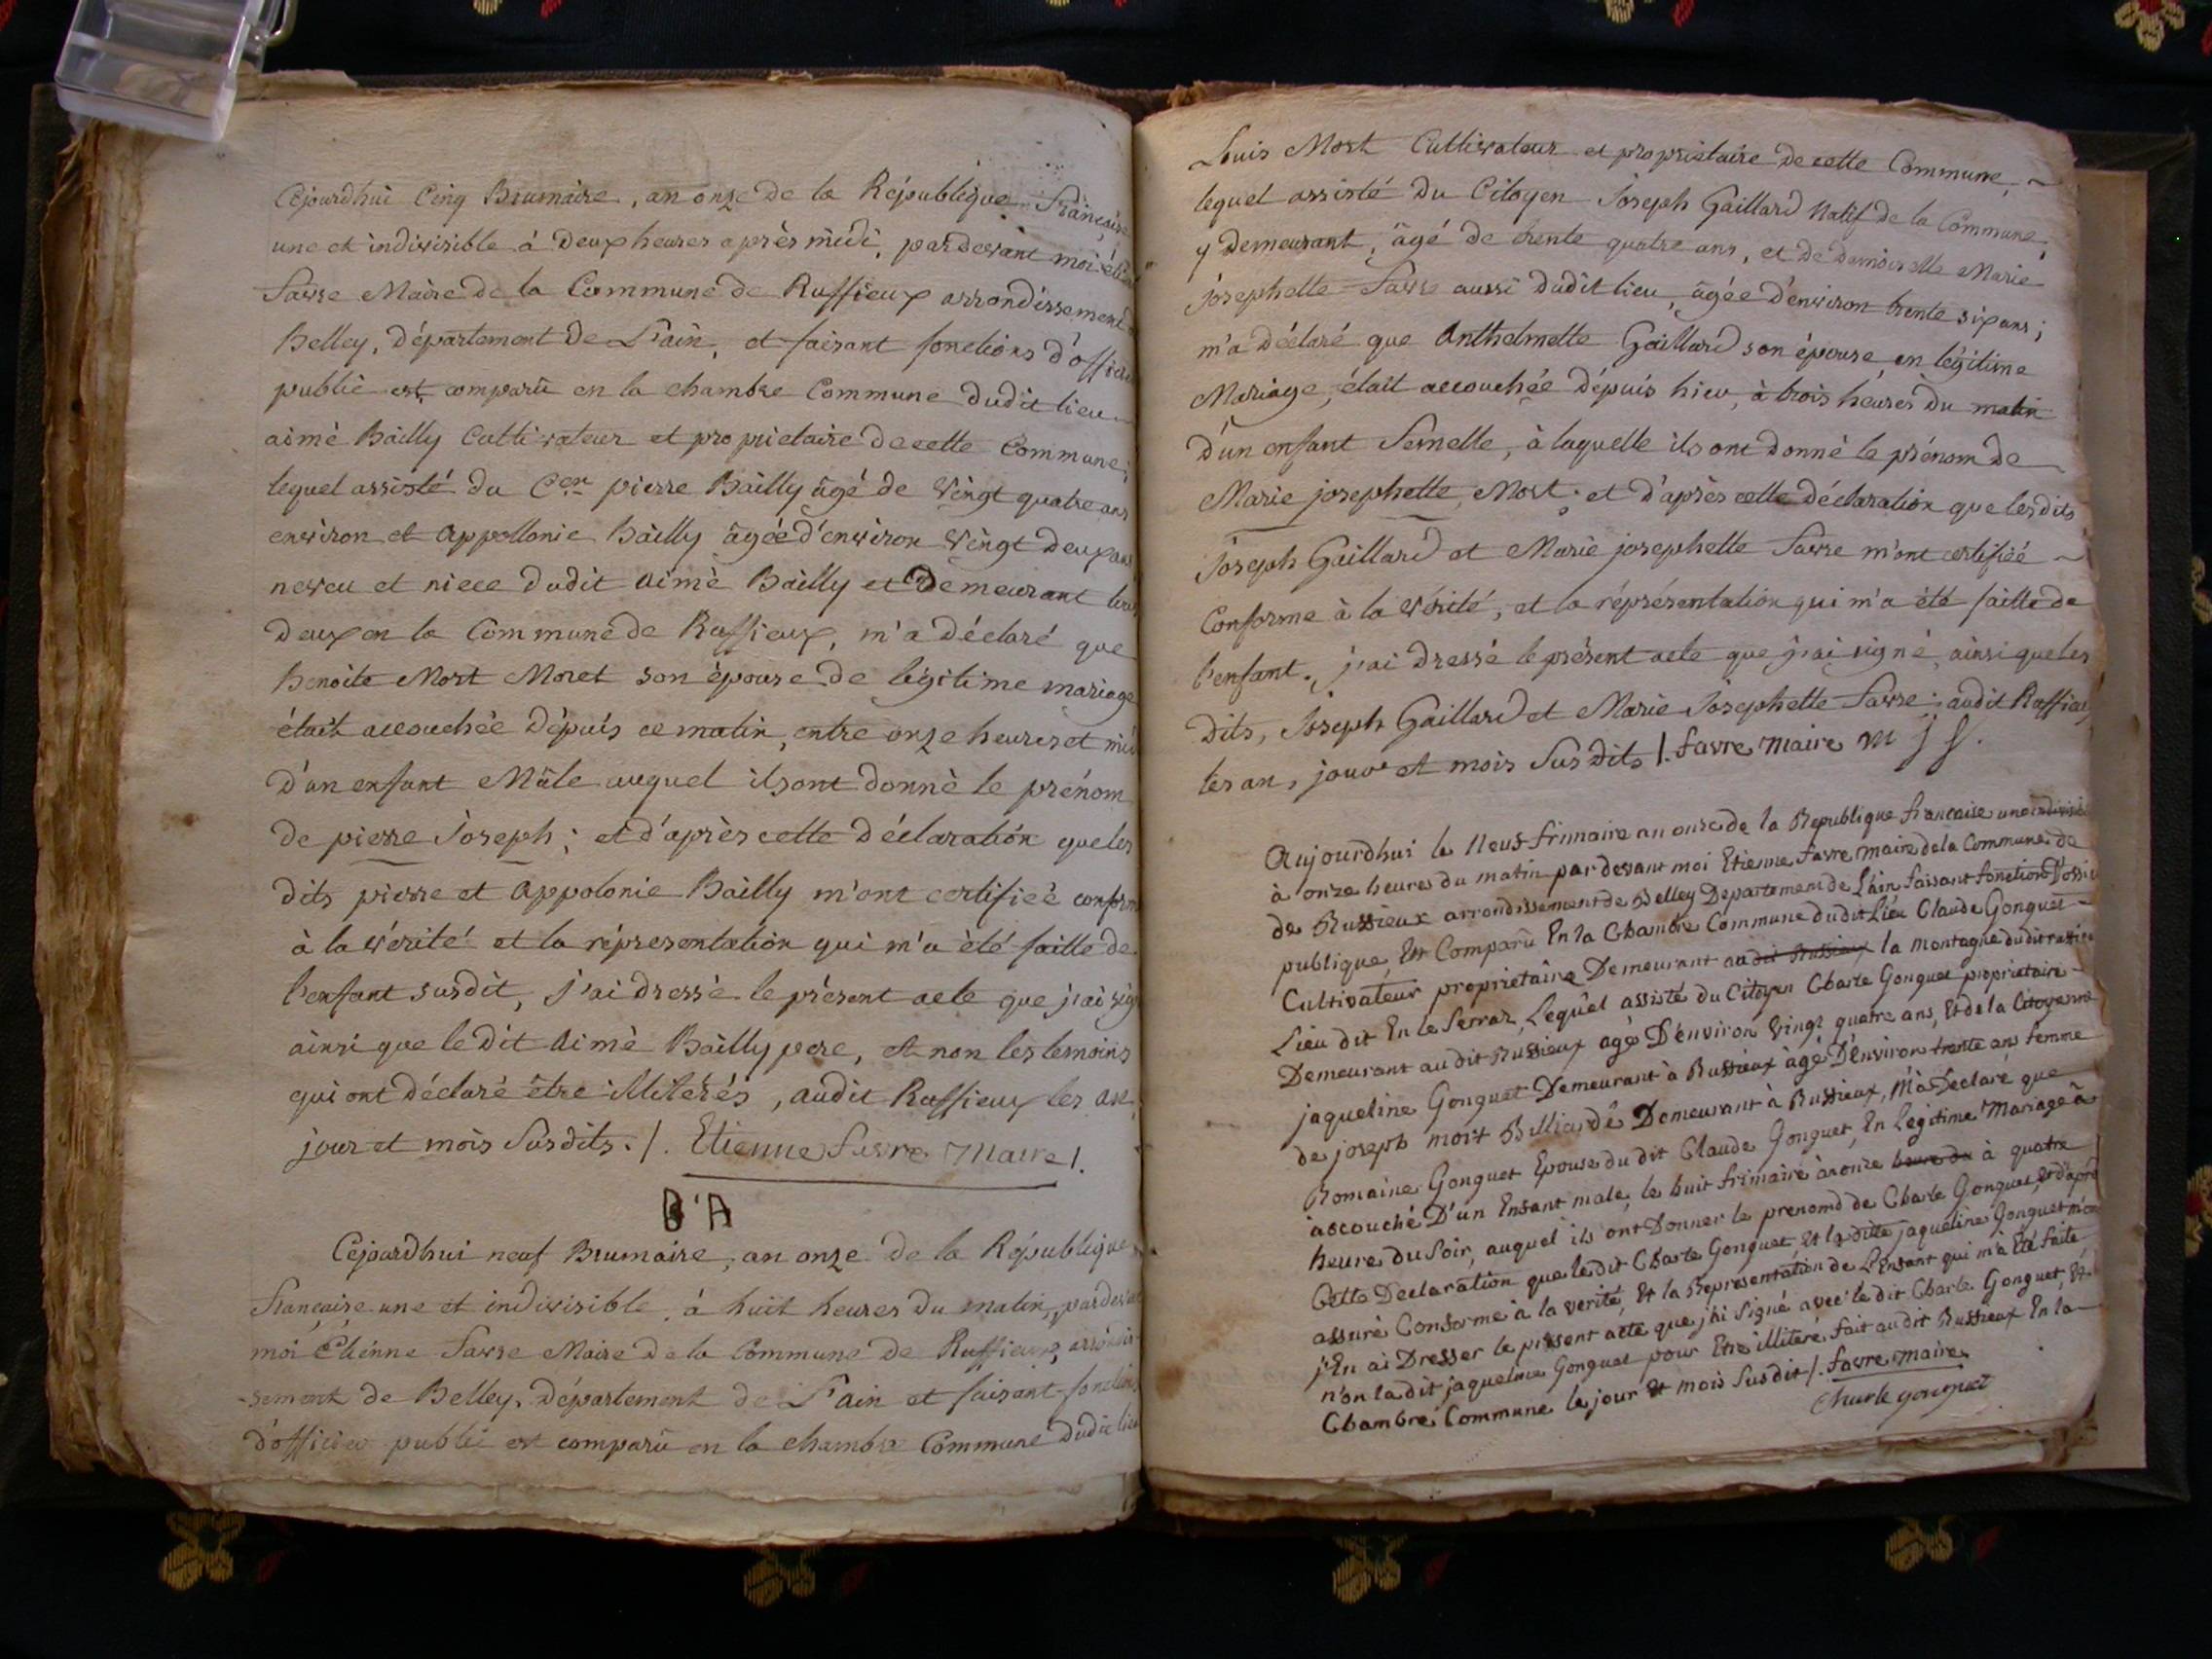 Cejourdhui Cinq Brumaire, an onze de la République Française
une et indivisible à Deux heures après midi, pardevant moi
Favre Maire de la Commune de Ruffieux arrondissement
Belley, Département De L'ain, et faisant fonctions d'officier
public est comparû en la chambre Commune dudit lieu
aimé Bailly Cultivateur et propriétaire De cette Commune;
lequel assisté du Cen pierre Bailly âgé de vingt quatre ans
environ et Appollonie Bailly âgée d'environ vingt Deux ans
neveu et niece dudit Aimé Bailly et Demeurant
Deux en la Commune de Ruffieux, m'a déclaré que
Benoite Mort Moret son épouse de légitime mariage
était accouchée Dépuis ce matin, entre onze heures et
D'un enfant Mâle auquel ils ont donné le prénom
de pierre Joseph; et d'après cette déclaration que les
dits pierre et Appolonie Bailly m'ont certifiée
à la vérité et la réprésentation qui m'a été faitte de
l'enfant susdit, j'ai dressé le présent acte que j'ai
ainsi que le dit Aimé Bailly pere, et non les temoins
qui ont déclaré être illiterés, audit Ruffieux les an,
jour et mois Susdits ./. Etienne Favre Maire /.
B'A
Cejourdhui neuf Brumaire, an onze de la République
Française une et indivisible, à huit heures du matin,
moi Etienne Favre Maire de la Commune de Ruffieux,
-sement de Belley, Département de L'ain et faisant
d'officier public est comparû en la chambre Commune dudit lieu
Louis Mort Cultivateur et propriétaire de cette Commune,
lequel assisté du Citoyen Joseph Gaillard Natif de la Commune,
y demeurant, âgé de trente quatre ans, et de demoiselle Marie
josephette Favre aussi dudit lieu, âgée d'environ trente six ans;
m'a déclaré que Anthelmette Gaillard son épouse, en légitime
Mariage, était accouchée Dépuis hier, à trois heures du matin
D'un enfant Femelle, à laquelle ils ont donné le prénom de
Marie josephette Mort; et d'après cette déclaration que lesdits
Joseph Gaillard et Marie josephette Favre m'ont certifiée
Conforme à la vérité, et la réprésentation qui m'a été faitte de
l'enfant, j'ai dressé le présent acte que j'ai signé, ainsi que les
Dits, Joseph Gaillard et Marie Josephette Favre; audit Ruffieux
les an, jour et mois Susdits /. favre maire m j f.
Aujourdhui le Neuf frimaire an onze de la Republique francaise une
à onze heures du matin par devant moi Etienne favre maire de la Commune de
de Ruffieux arrondissement de Belley Departement de L'ain faisant fonction
publique, Est Comparû En la Chambre Commune dudit Lieu Claude Gonguet
Cultivateur proprietaire Demeurant audit Ruffieux la montagne dudit
Lieu dit En le Serraz, Lequel assisté du Citoyen Charle Gonguet proprietaire
Demeurant audit Ruffieux agé D'environ vingt quatre ans, Et de la Citoyenne
jaqueline Gonguet Demeurant à Ruffieux âgé D'environ trente ans femme
de joseph mort Billiardé Demeurant à Ruffieux, M'a Declaré que
Romaine Gonguet Epouse du dit Claude Gonguet, En Legitime Mariage à
accouché D'un Enfant male, le huit frimaire an onze heure du à quatre
heure du Soir, auquel ils ont Donner le prenomd de Charle Gonguet, Et d'après
Cette Declaration que ledit Charle Gonguet, Et la ditte jaqueline Gonguet
assuré Conforme à la verité, Et la Representation de L'Enfant qui m'a Eté faite
j'En ai Dresser le present acte que jai Signé avec le dit Charle Gonguet, Et
n'on la dit jaqueline Gonguet pour Etre illiteré, fait audit Ruffieux En la
Chambre Commune le jour Et mois Susdit /. favre maire
Charle gonguet